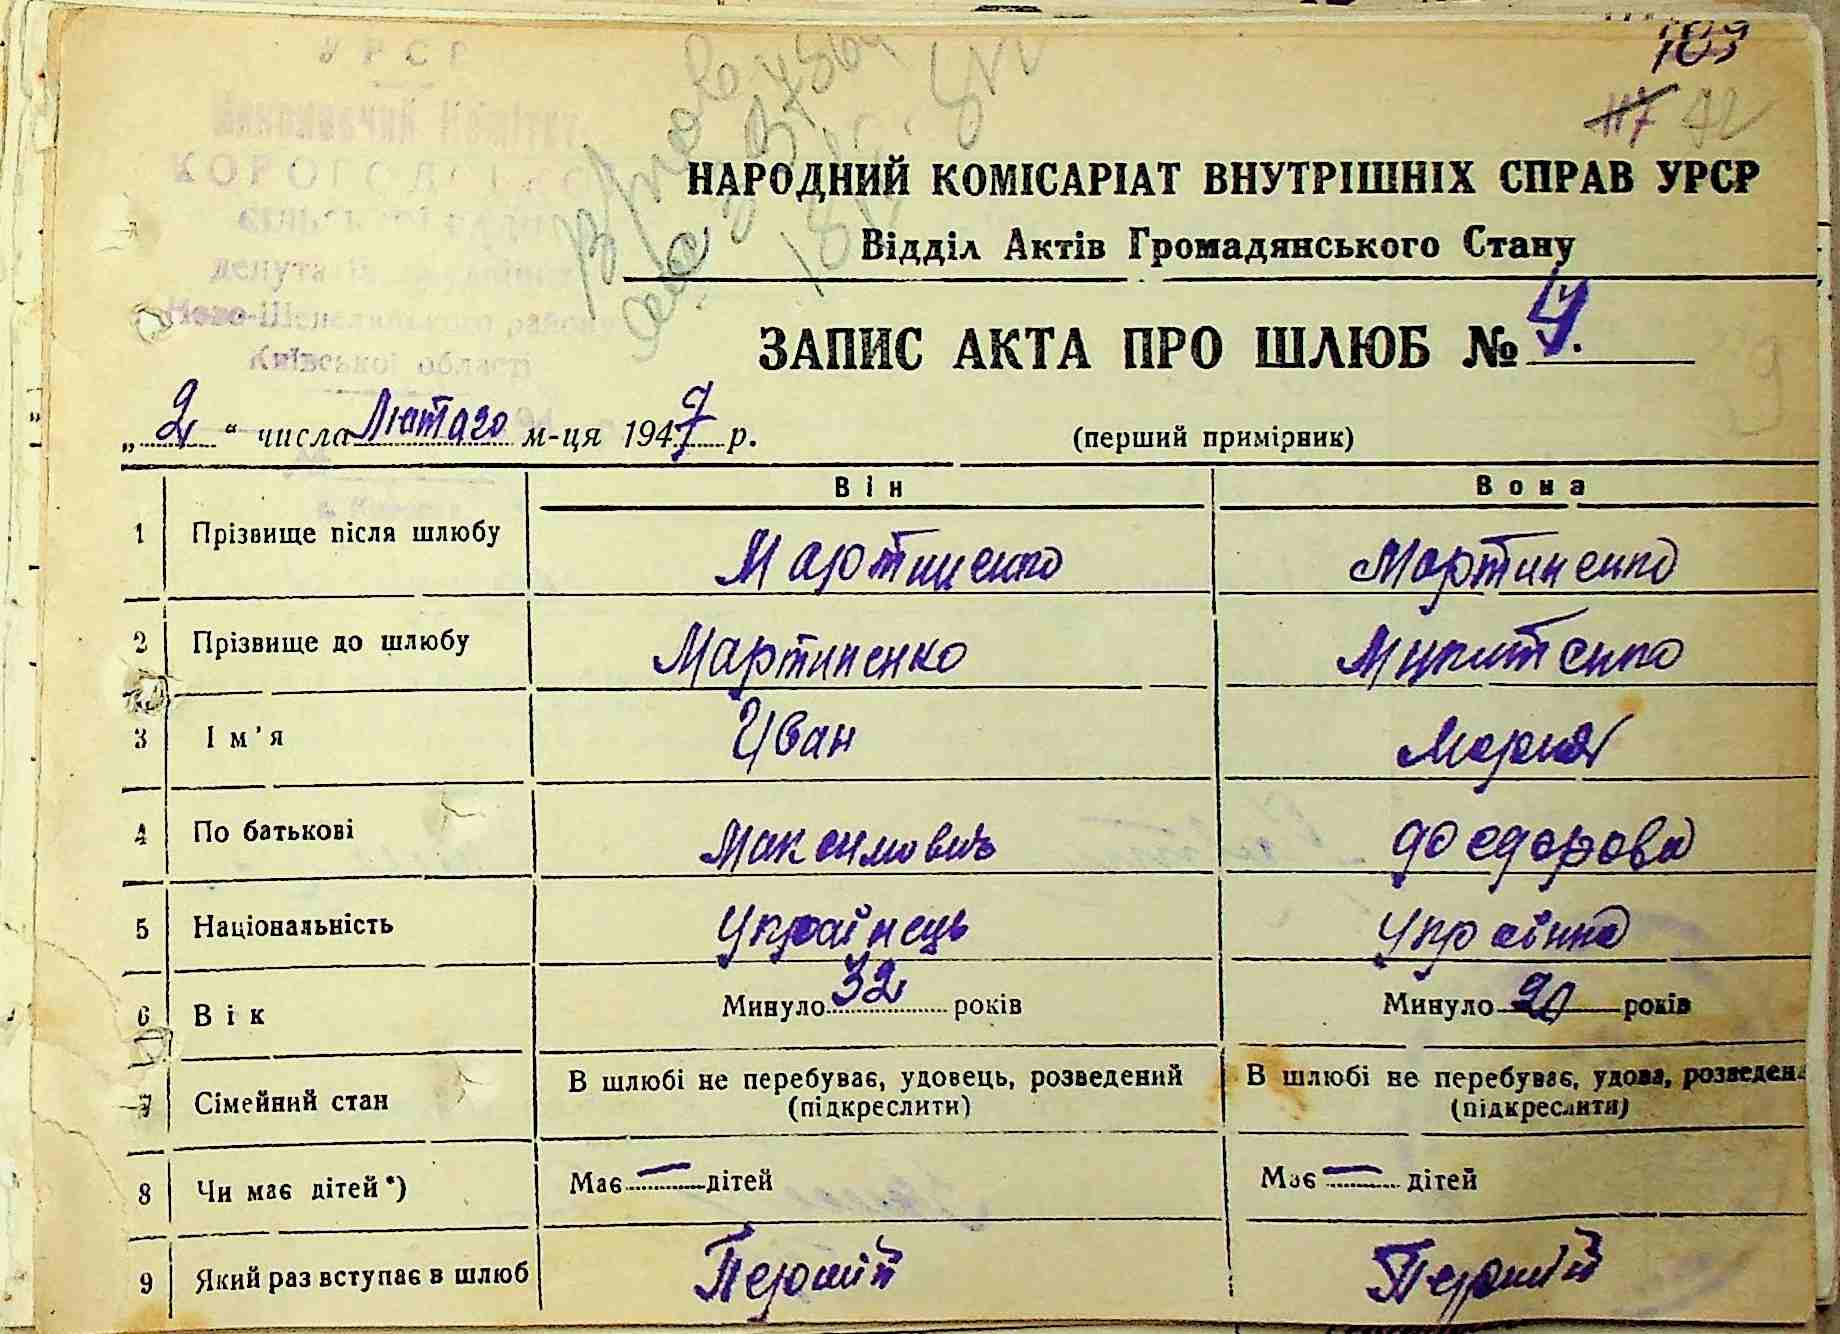 УРСР
Виконавчий Комітет
КОРОГОДСЬКОЇ
СІЛЬСЬКОЇ РАДИ
депутатів трудящих
Ново-Шепелицького району
Київської області
109
117 42
НАРОДНИЙ КОМІСАРІАТ ВНУТРІШНІХ СПРАВ УРСР
Відділ Актів Громадянського Стану
ЗАПИС АКТА ПРО ШЛЮБ № 4.
„2“ числа Лютаго м-ця 1947 р.
(перший примірник)
Він Вона
1 Прізвище після шлюбу Мартиненко Мартиненко
2 Прізвище до шлюбу Мартиненко Микитенко
3 Ім'я Иван Мария
4 По батькові Максимович Феодорова
5 Національність Українець Українка
6 Вік Минуло 32 років Минуло 20 років
7 Сімейний стан В шлюбі не перебуває, удовець, розведений (підкреслити) В шлюбі не перебуває, удова, розведена (підкреслити)
8 Чи має дітей*) Має — дітей Має — дітей
9 Який раз вступає в шлюб Перший Перший